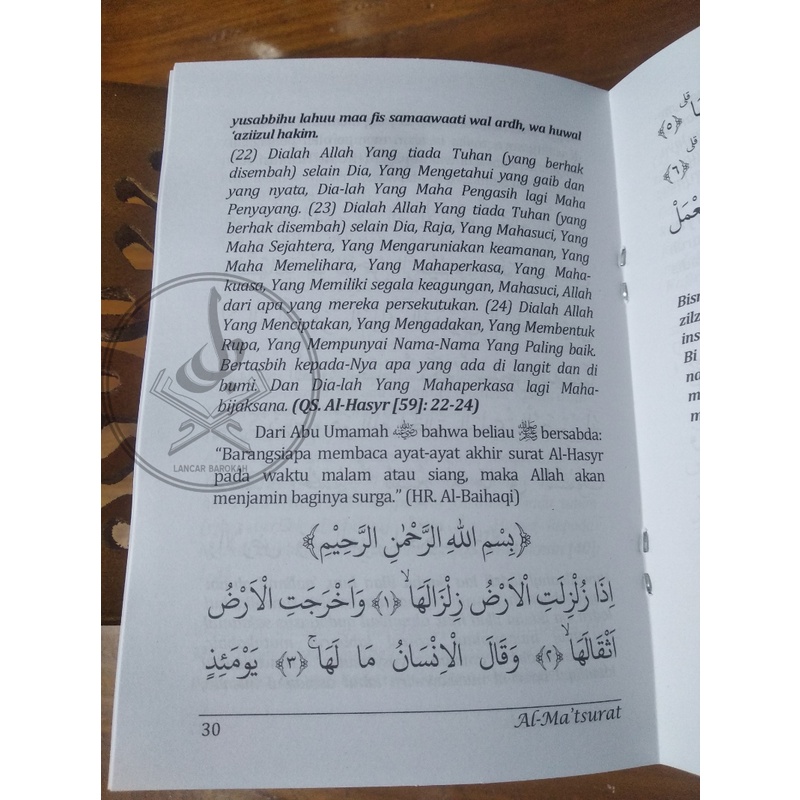 yusabbihu lahuu maa fis samaawaati wal ardh, wa huwal
‘aziizul hakim.
(22) Dialah Allah Yang tiada Tuhan (yang berhak
disembah) selain Dia, Yang Mengetahui yang gaib dan
yang nyata, Dia-lah Yang Maha Pengasih lagi Maha
Penyayang. (23) Dialah Allah Yang tiada Tuhan (yang
berhak disembah) selain Dia, Raja, Yang Mahasuci, Yang
Maha Sejahtera, Yang Mengaruniakan keamanan, Yang
Maha Memelihara, Yang Mahaperkasa, Yang Maha-
kuasa, Yang Memiliki segala keagungan, Mahasuci, Allah
dari apa yang mereka persekutukan. (24) Dialah Allah
Yang Menciptakan, Yang Mengadakan, Yang Membentuk
Rupa, Yang Mempunyai Nama-Nama Yang Paling baik.
Bertasbih kepada-Nya apa yang ada di langit dan di
bumi. Dan Dia-lah Yang Mahaperkasa lagi Maha-
bijaksana. (QS. Al-Hasyr [59]: 22-24)
Dari Abu Umamah bahwa beliau ﷺ bersabda:
“Barangsiapa membaca ayat-ayat akhir surat Al-Hasyr
pada waktu malam atau siang, maka Allah akan
menjamin baginya surga.” (HR. Al-Baihaqi)
﴿بِسْمِ اللهِ الرَّحْمٰنِ الرَّحِيْمِ﴾
اِذَا زُلْزِلَتِ الْاَرْضُ زِلْزَالَهَاۙ ﴿١﴾ وَاَخْرَجَتِ الْاَرْضُ
اَثْقَالَهَاۙ ﴿٢﴾ وَقَالَ الْاِنْسَانُ مَا لَهَاۚ ﴿٣﴾ يَوْمَئِذٍ
30
Al-Ma’tsurat
LANCAR BAROKAH
﴿٥﴾
﴿٦﴾
Bisn
zilz
ins
Bi
na
m
m